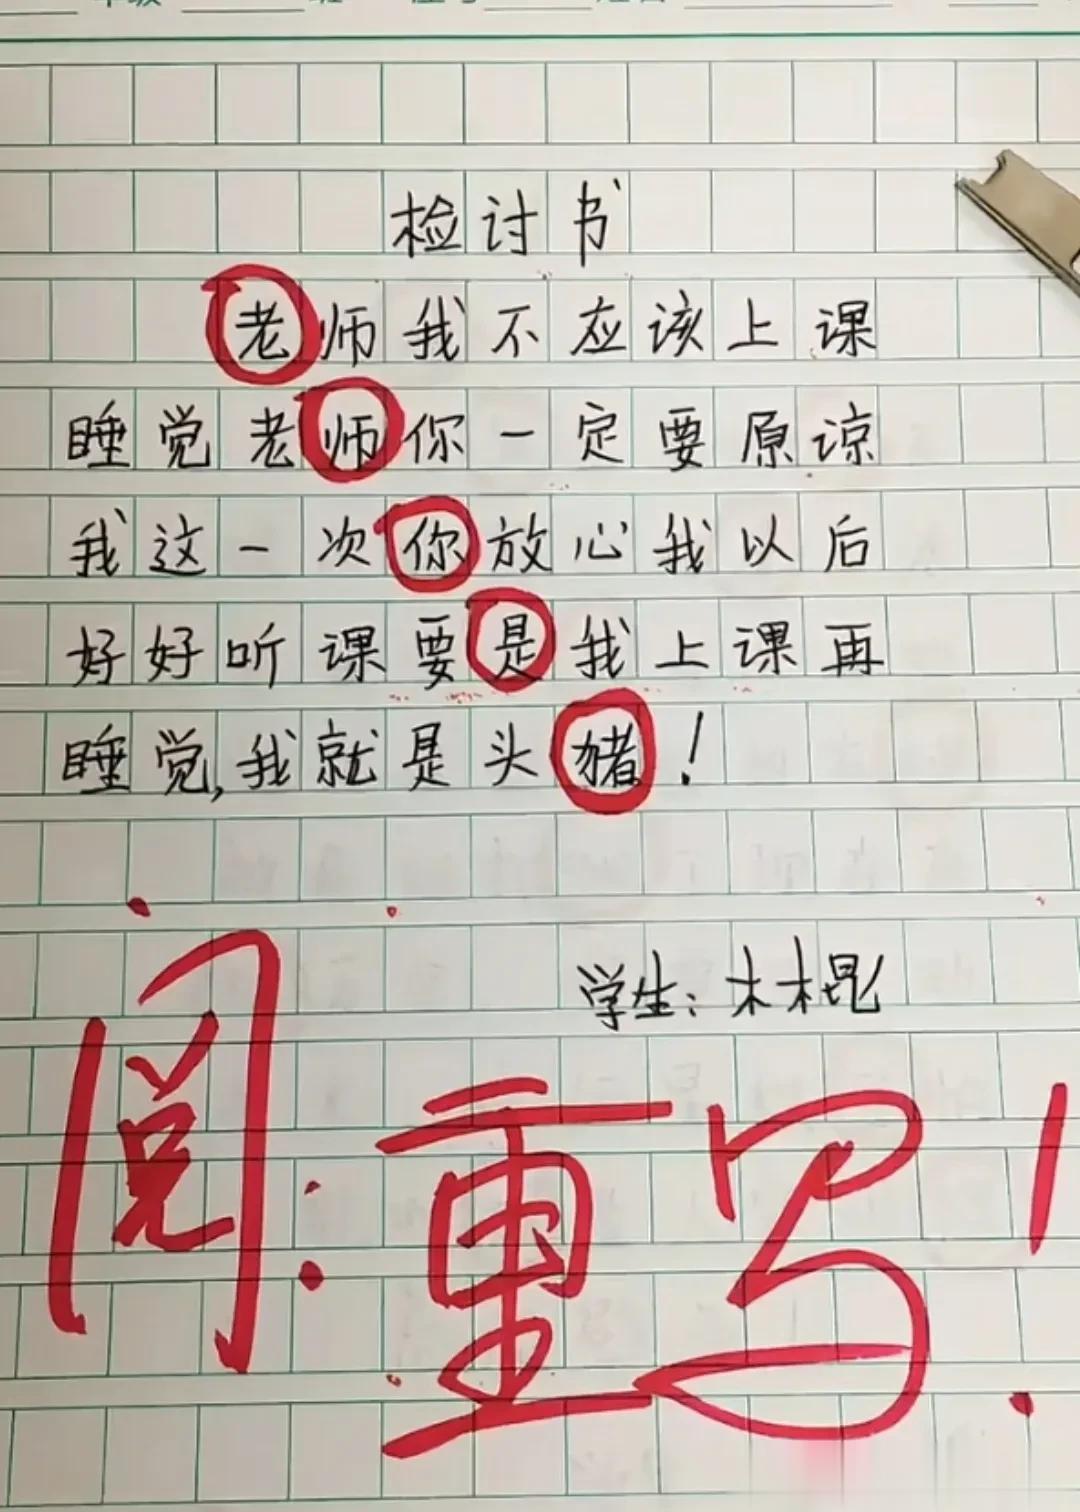 检讨书
老师我不应该上课
睡觉老师你一定要原谅
我这一次你放心我以后
好好听课要是我上课再
睡觉,我就是头猪!
学生:木木昆
阅:重写!